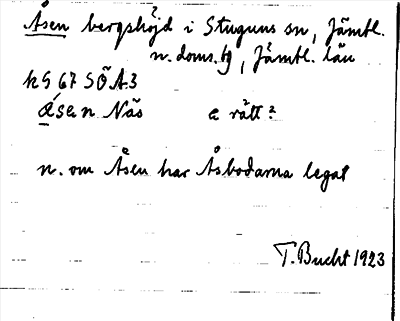 Åsen bergshöjd i Stuguns sn, Jämtl.
n. doms. tg, Jämtl. län
kg 67 SÖ A3
åsen Näs a rätt?
n. om Åsen har Åsbodarna legat
T. Bucht 1923